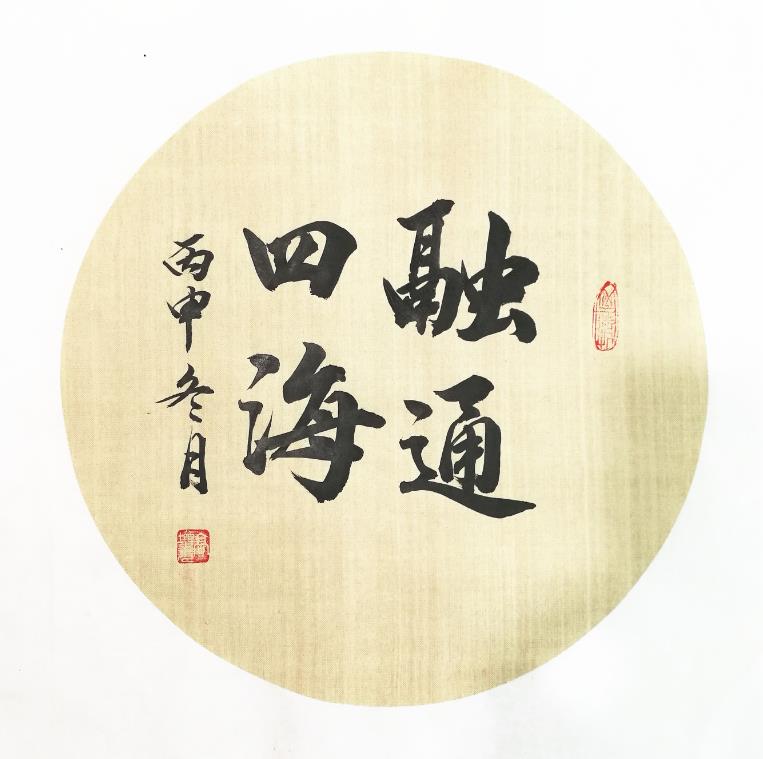 融通
四海
丙申冬月